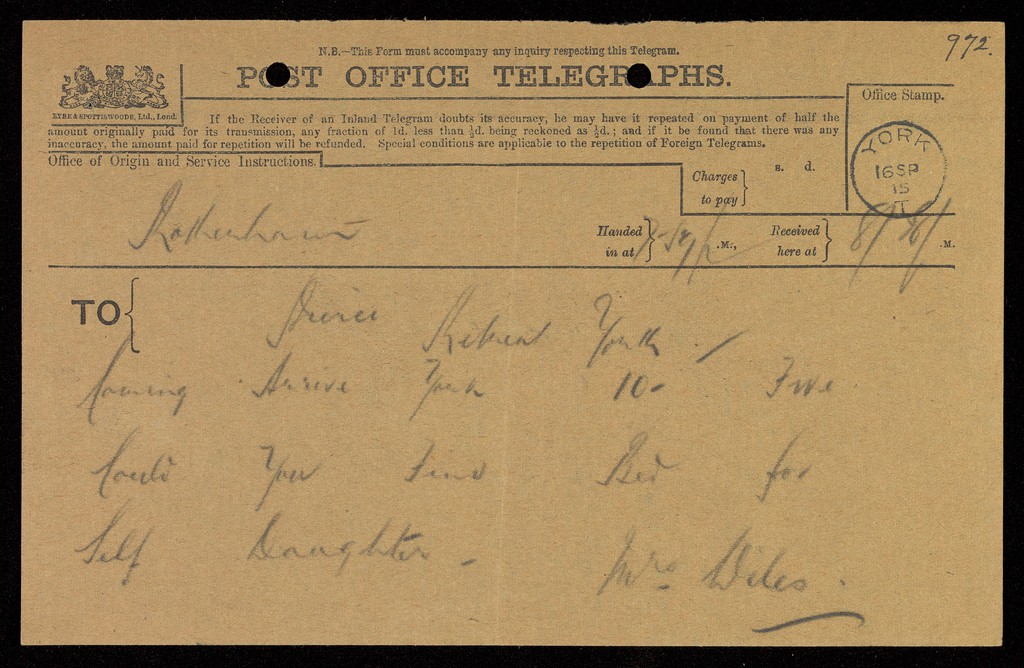 972.
N.B.—This Form must accompany any inquiry respecting this Telegram.
POST OFFICE TELEGRAPHS.
EYRE & SPOTTISWOODE, Ltd., Lond.
If the Receiver of an Inland Telegram doubts its accuracy, he may have it repeated on payment of half the
amount originally paid for its transmission, any fraction of 1d. less than ½d. being reckoned as ½d.; and if it be found that there was any
inaccuracy, the amount paid for repetition will be refunded. Special conditions are applicable to the repetition of Foreign Telegrams.
Office Stamp.
YORK
16 SP
15
Office of Origin and Service Instructions.
Charges to pay } s. d.
Handed in at } .M.,
Received here at } .M.
TO { Retreat York
Coming Arrive York 10- Five
Could You Find Bed for
Self Daughter - Mrs Wiles.